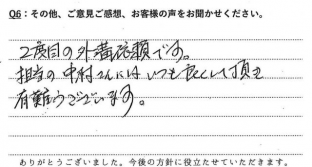 Q6：その他、ご意見ご感想、お客様の声をお聞かせください。
2度目の外構依頼です。
担当の中村さんにはいつも良くして頂き
有難うございます。
ありがとうございました。今後の方針に役立たせていただきます。